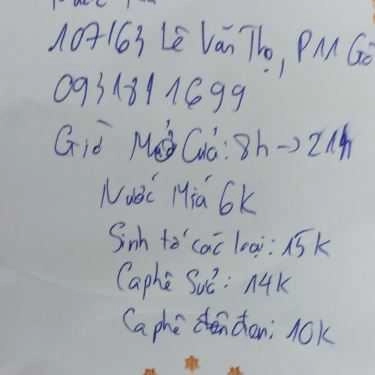 107/63 Lê Văn Thọ, P11 Gò
0931811699
Giờ Mở Cửa: 8h -> 21h
Nước Mía 6K
Sinh tố các loại: 15K
Caphê Sữa: 14K
Caphê đen đen: 10K